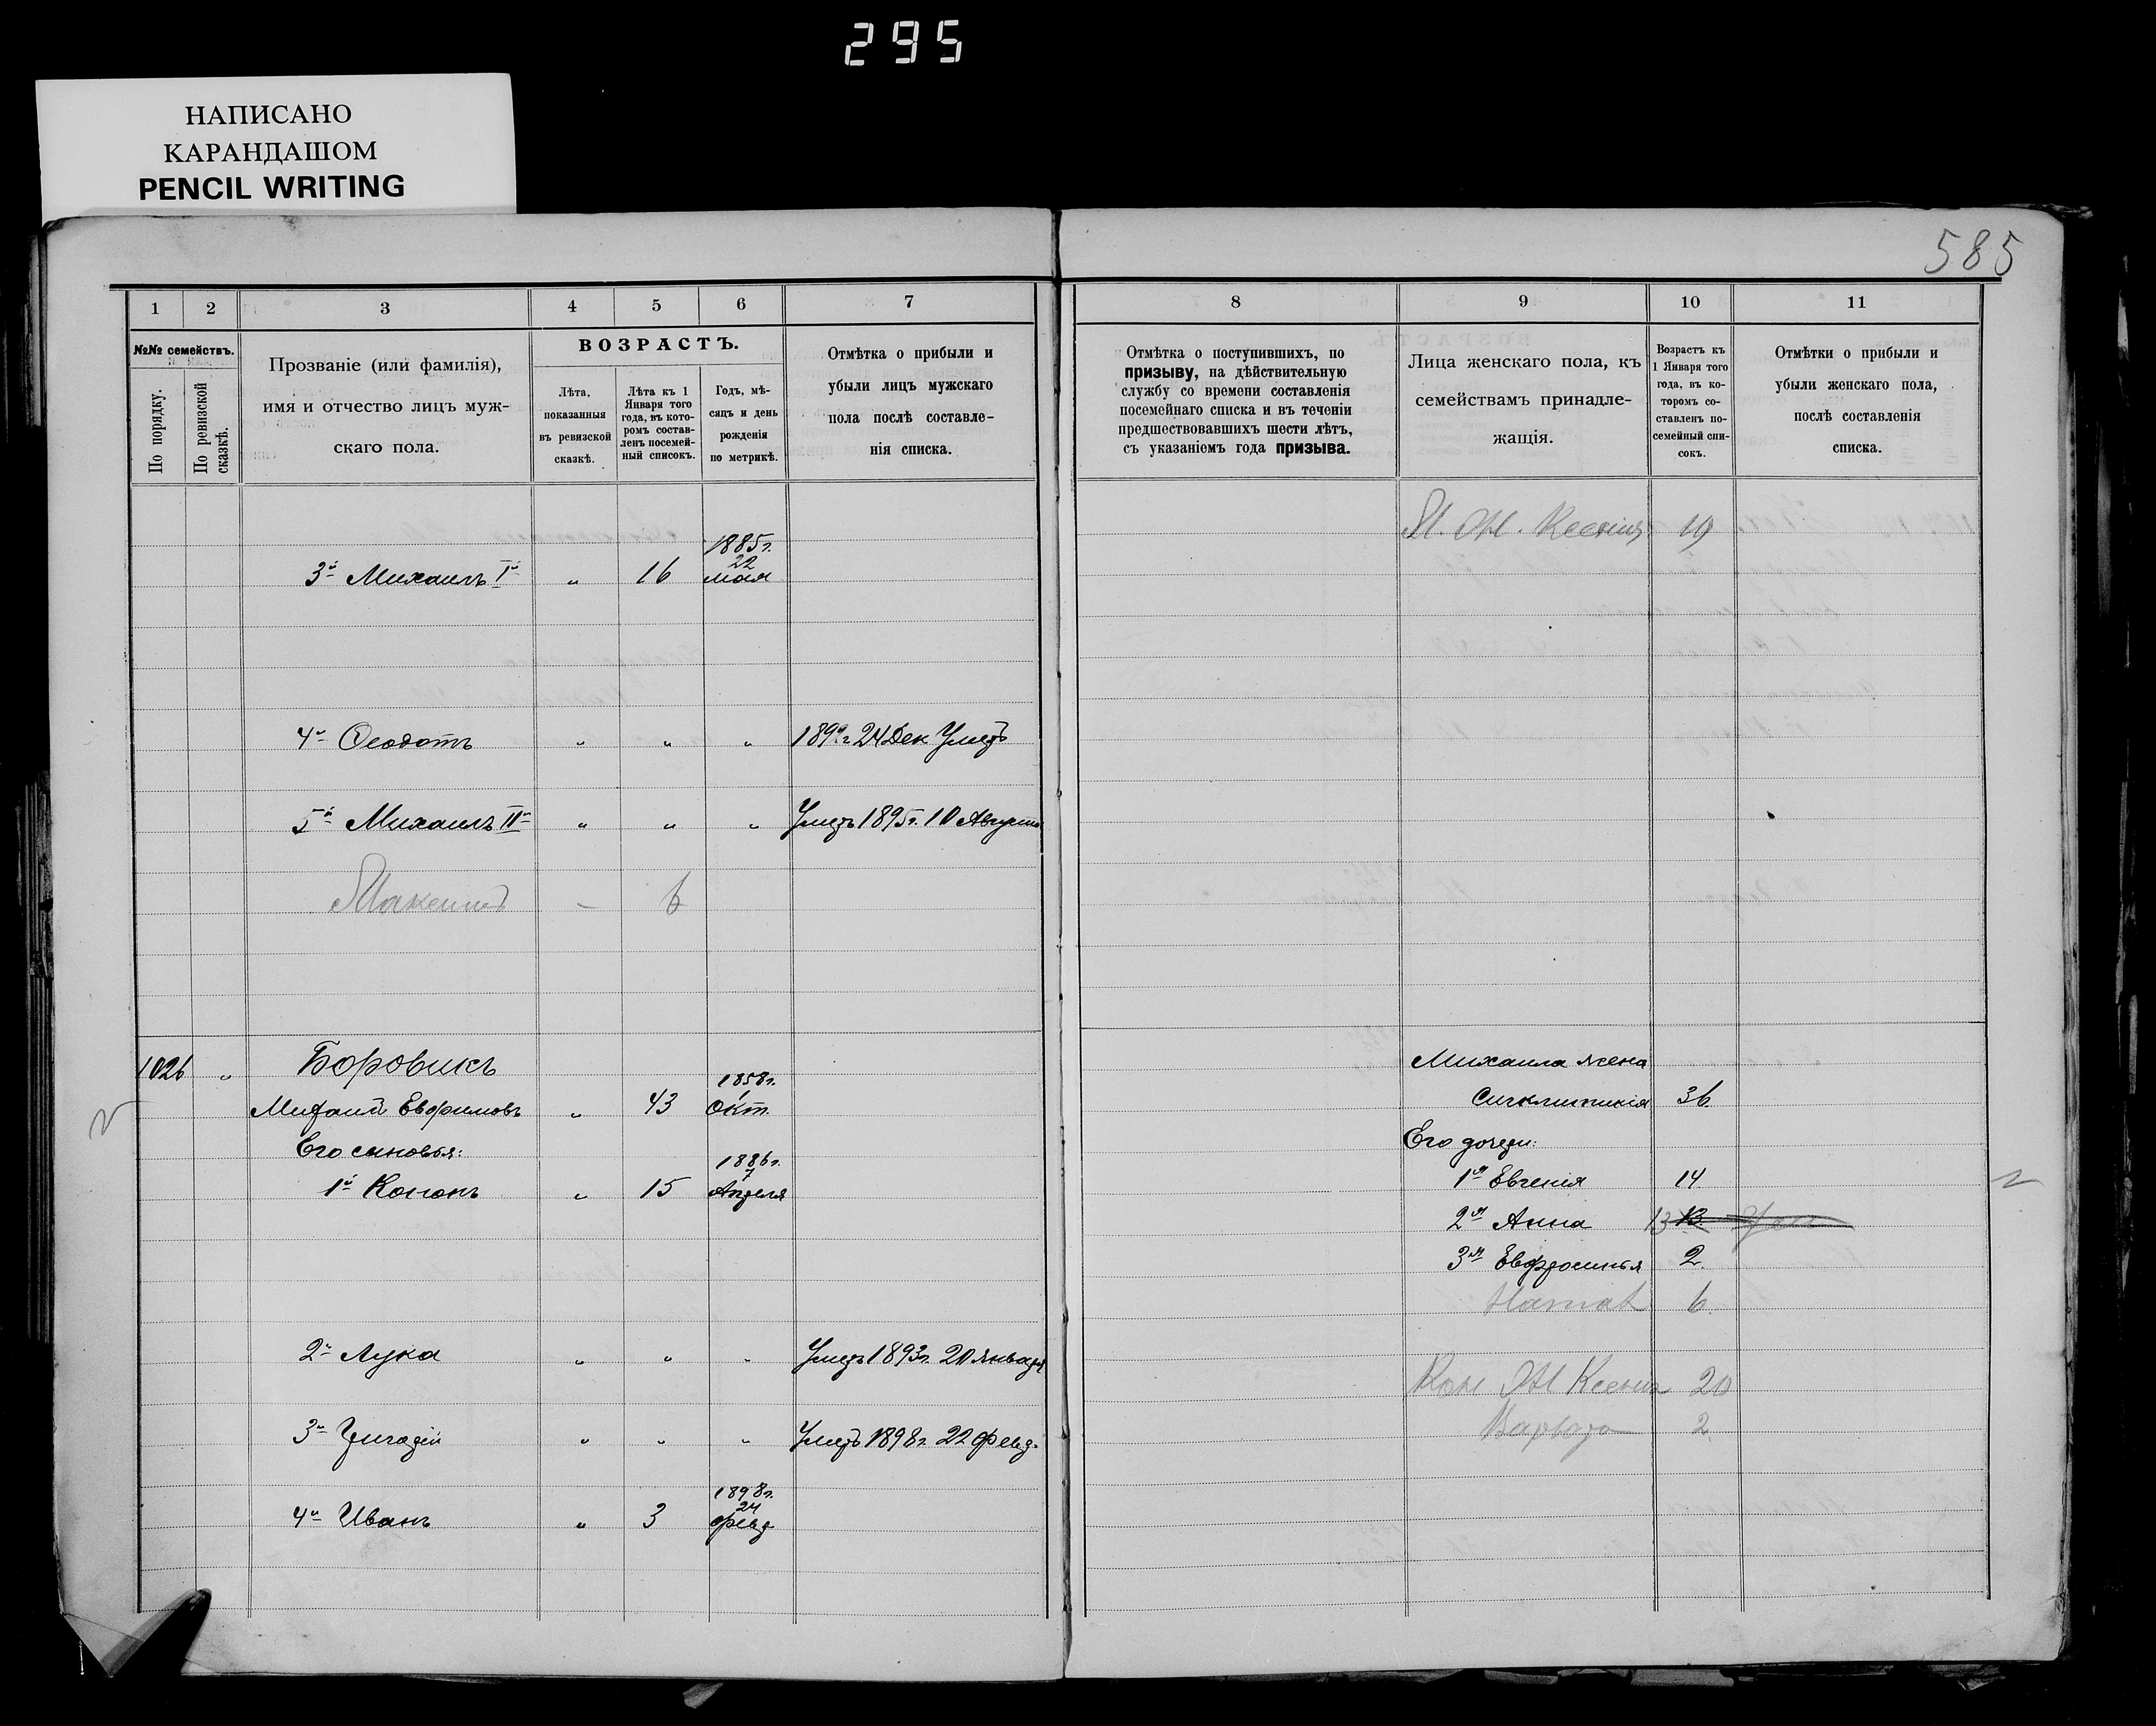 295
НАПИСАНО
КАРАНДАШОМ
PENCIL WRITING
585
1 2 3 4 5 6 7 8 9 10 11
№№ семействъ.
По порядку.
По ревизской сказкѣ.
Прозваніе (или фамилія),
имя и отчество лицъ муж-
скаго пола.
ВОЗРАСТЪ.
Лѣта,
показанныя
въ ревизской
сказкѣ.
Лѣта къ 1
Января того
года, въ кото-
ромъ состав-
ленъ посемей-
ный списокъ.
Годъ, мѣ-
сяцъ и день
рожденія
по метрикѣ.
Отмѣтка о прибыли и
убыли лицъ мужскаго
пола послѣ составле-
нія списка.
Отмѣтка о поступившихъ, по
призыву, на дѣйствительную
службу со времени составленія
посемейнаго списка и въ теченіи
предшествовавшихъ шести лѣтъ,
съ указаніемъ года призыва.
Лица женскаго пола, къ
семействамъ принадле-
жащія.
Возрастъ къ
1 Января того
года, въ ко-
торомъ со-
ставленъ по-
семейный спи-
сокъ.
Отмѣтки о прибыли и
убыли женскаго пола,
послѣ составленія
списка.
М. Ж. Ксения 19
1885г.
22
3й Михаилъ Iй " 16 мая
4й Ѳеодотъ " " " 24 Дек Умеръ
5й Михаилъ IIй " " " Умеръ 1895г. 10 Августа
Максимъ - 6
1026 " Боровикъ
Михаила жена
1858г.
1
Михаилъ Евфимовъ " 43 Окт.
Синклитикія 36.
Его сыновья:
Его дочери:
1886г.
7
1й Кононъ " 15 Апреля
1я Евгенія 14
2я Анна 13 13
3я Евфросинья 2.
6.
2й Лука " " " Умеръ 1893г. 20 Января
Кон Ж Ксения 20
Варвара 2.
3й " " " Умеръ 1898г. 22 Февр.
1898г.
24
4й Иванъ " 3 Февр